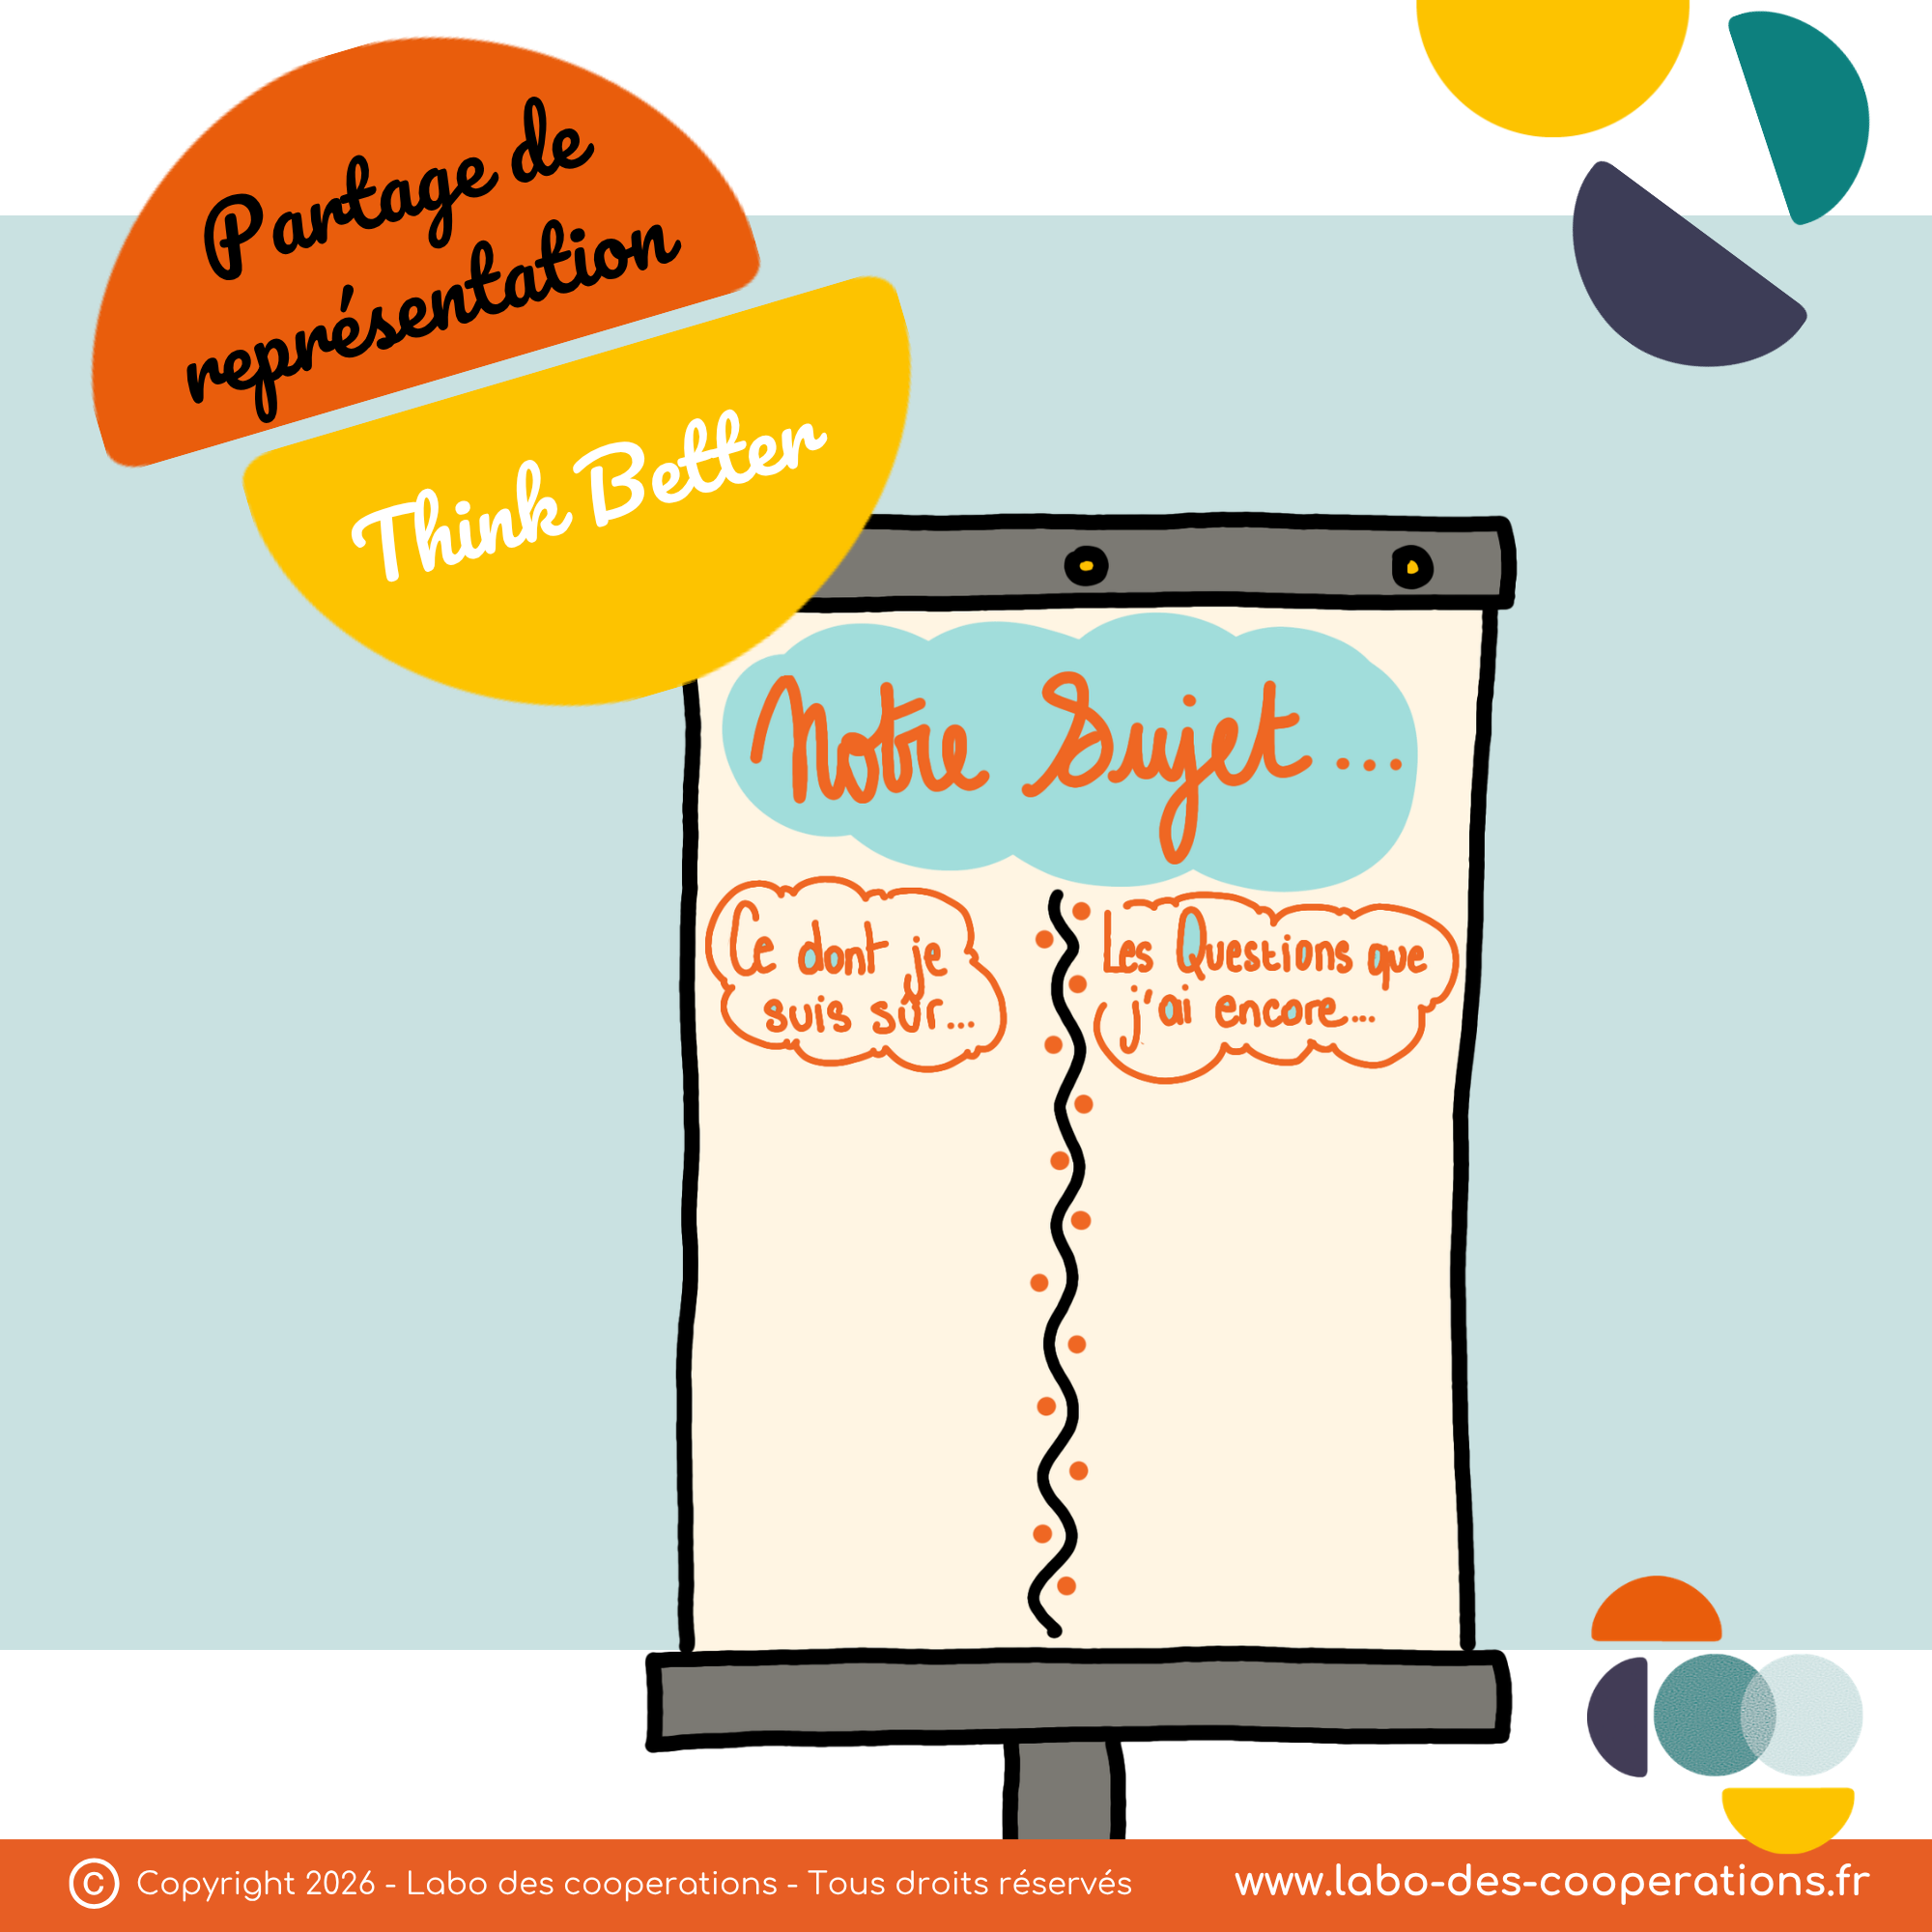 Partage de
représentation
Think Better
Notre Sujet....
Ce dont je
suis sûr...
Les Questions que
j'ai encore...
© Copyright 2026 - Labo des cooperations - Tous droits réservés
www.labo-des-cooperations.fr